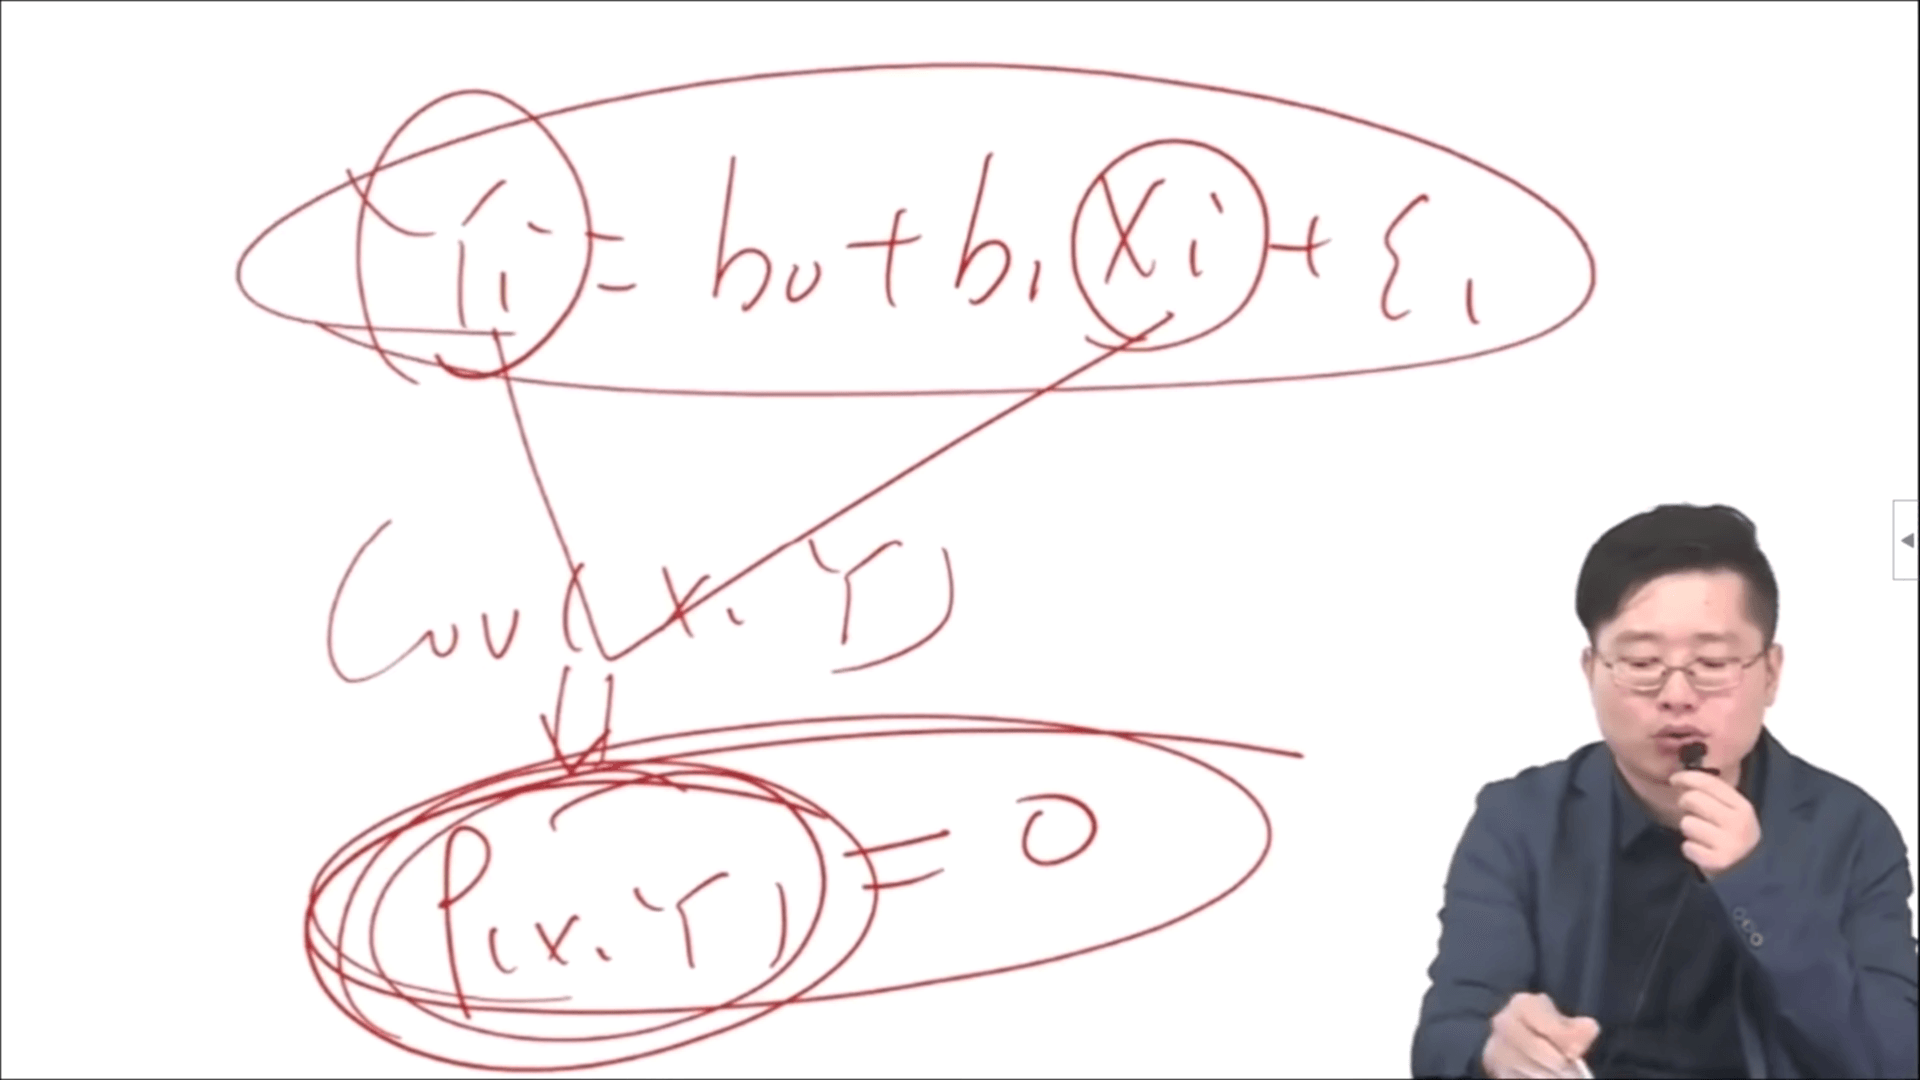 Yi = b0 + b1 Xi + ε1
Cov (X, Y)
ρ(X, Y) = 0